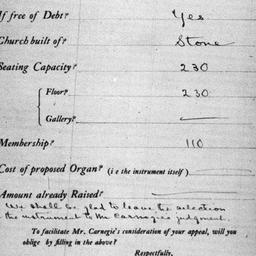 If free of Debt? Yes
Church built of? Stone
Seating Capacity? 230
Floor? 230
Gallery? —
Membership? 110
Cost of proposed Organ? (i e the instrument itself) —
Amount already Raised? —
We shall be glad to leave the selection
the instrument to Mr Carnegies judgment.
To facilitate Mr. Carnegie's consideration of your appeal, will you
oblige by filling in the above?
Respectfully,